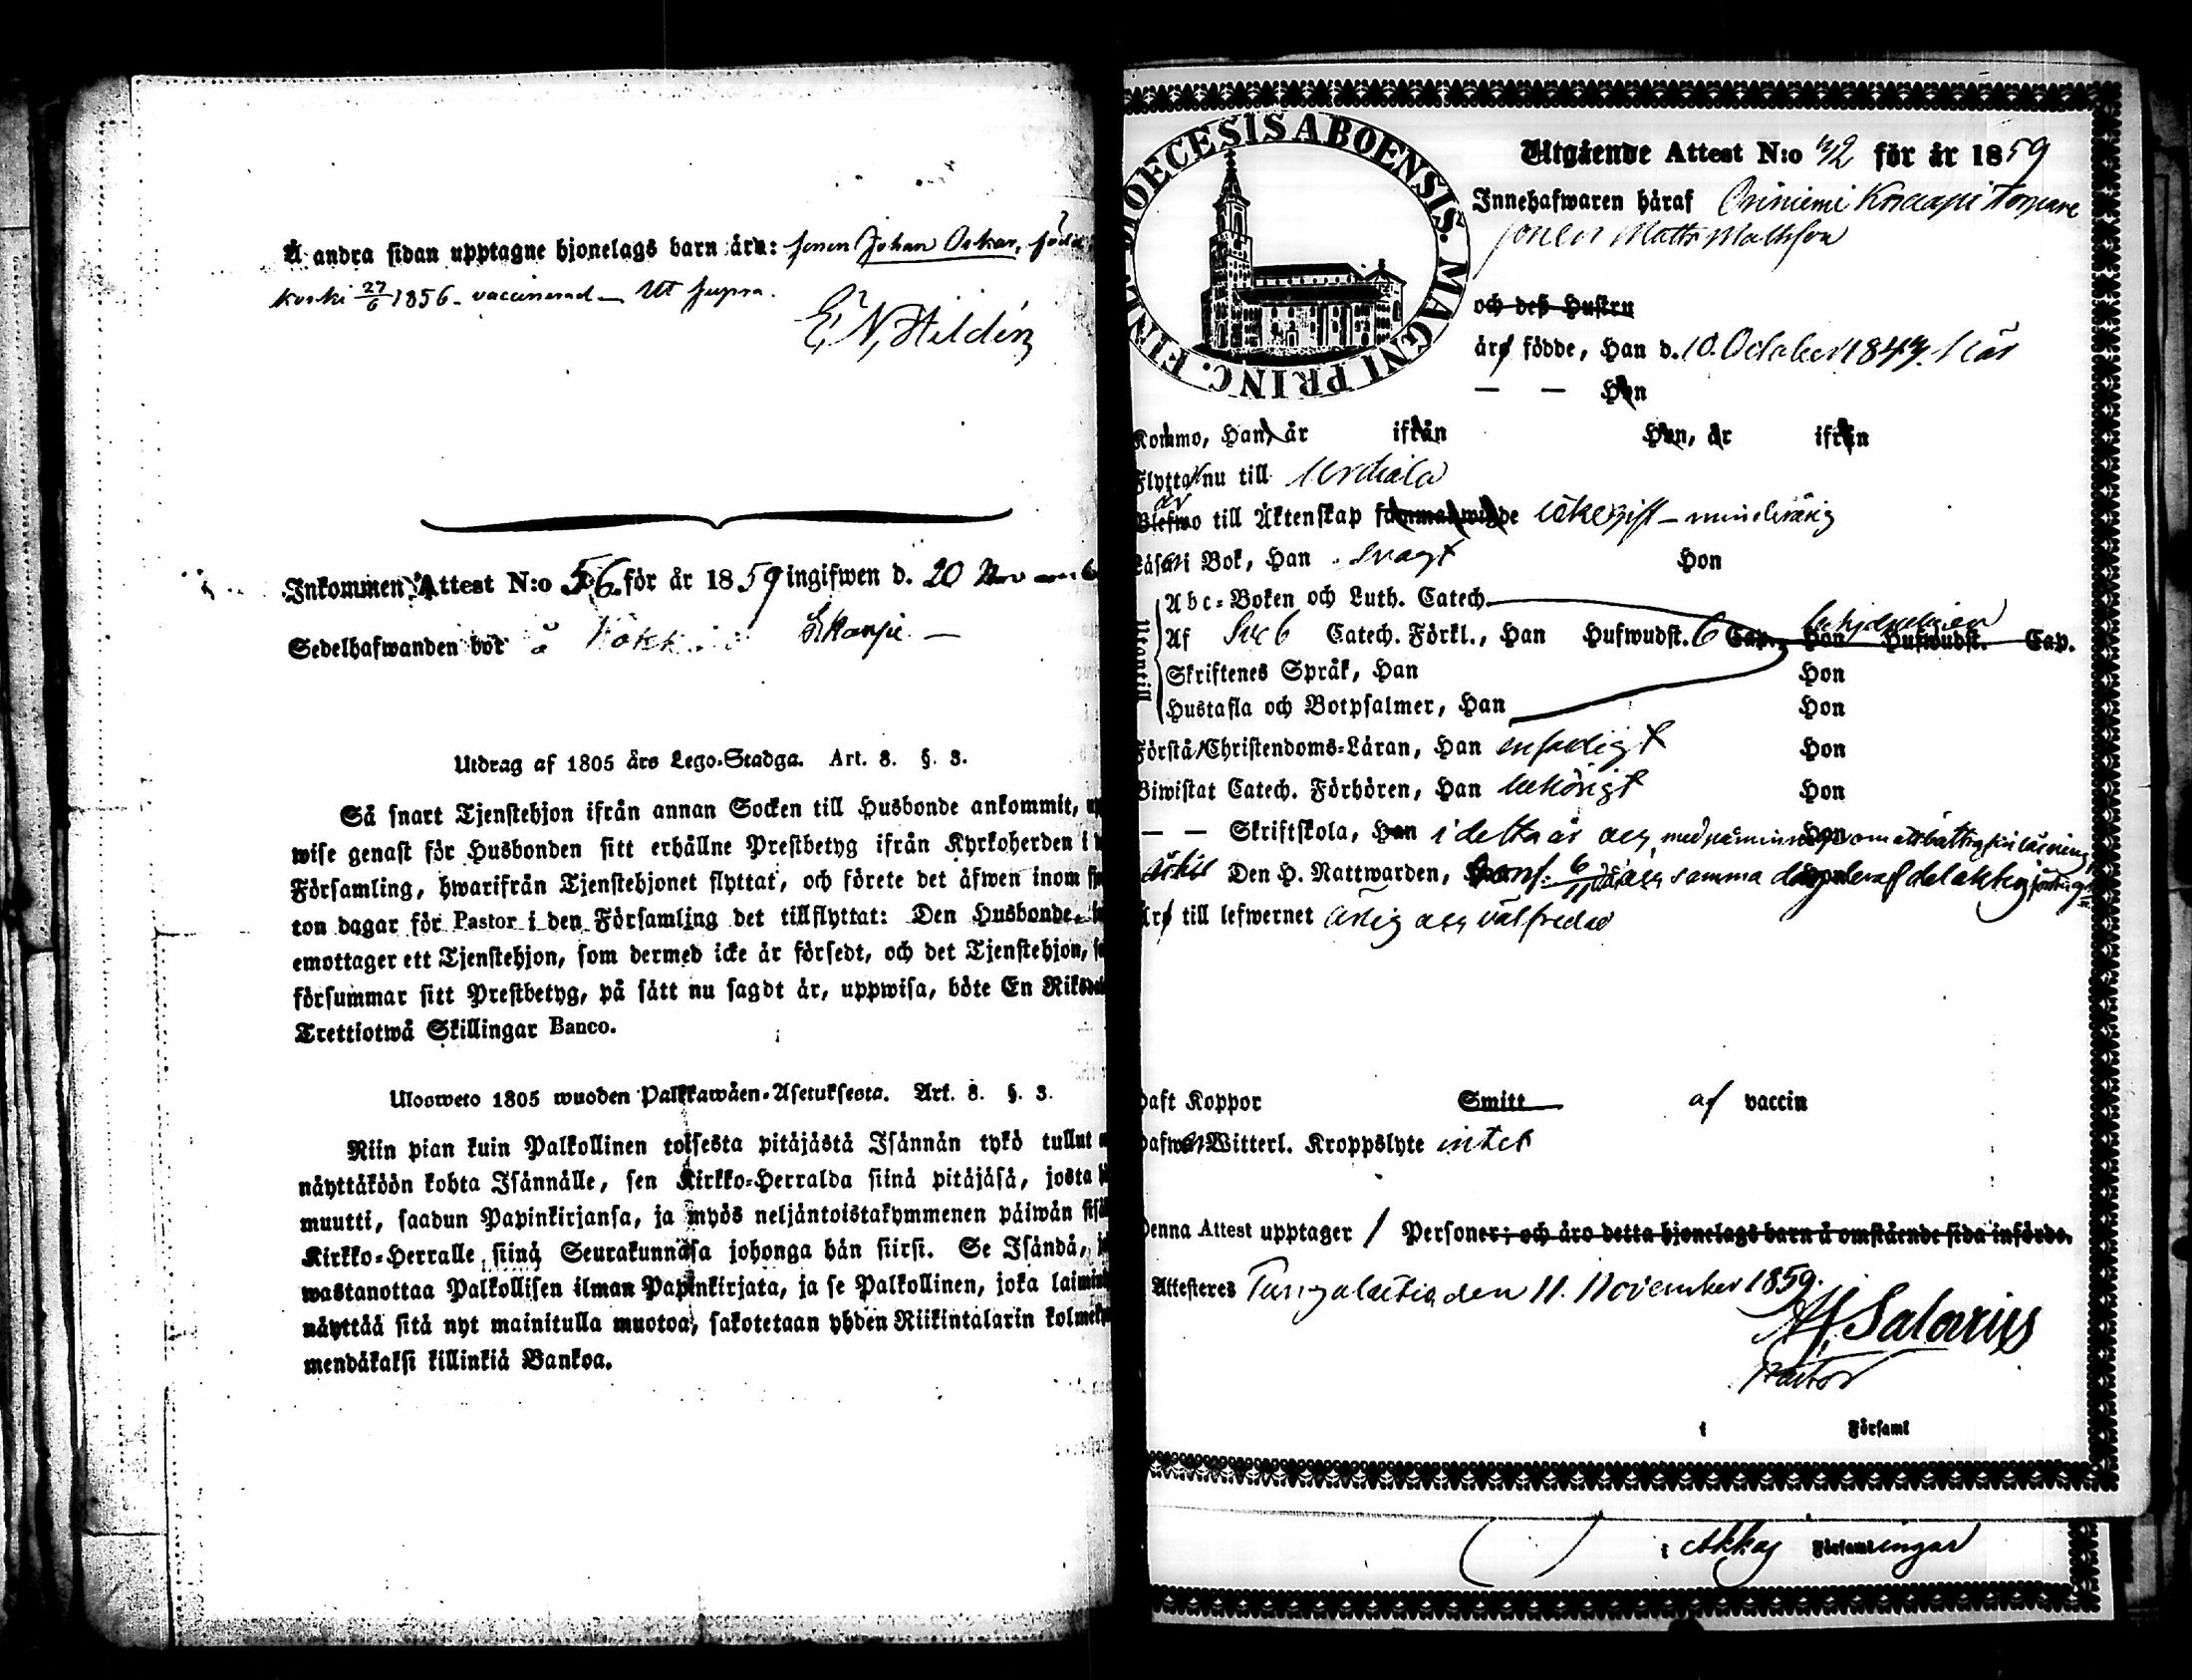 Å andra sidan upptagne hjonelags barn äro: sonen Johan Oskar, född
koski 27/6 1856 - vaccinerad - Ut supra.
E. N. Hildén
Inkommen Attest N:o 56 för år 1859 ingifwen d. 20 November
Sedelhafwanden bor å
Utdrag af 1805 års Lego-Stadga. Art. 8. §. 3.
Så snart Tjenstehjon ifrån annan Socken till Husbonde ankommit,
wise genast för Husbonden sitt erhållne Prestbetyg ifrån Kyrkoherden i
Församling, hwarifrån Tjenstehjonet flyttat, och förete det äfwen inom
ton dagar för Pastor i den Församling det tillflyttat: Den Husbonde,
emottager ett Tjenstehjon, som dermed icke är försedt, och det Tjenstehjon,
försummar sitt Prestbetyg, på sätt nu sagdt är, uppwisa, böte En
Trettiotwå Skillingar Banco.
Ulosweto 1805 wuoden Palkkawäen-Asetuksesta. Art. 8. §. 3.
Niin pian kuin Palkollinen toisesta pitäjästä Isännän tykö tullut
näyttäköön kohta Isännälle, sen Kirkko-Herralda siinä pitäjäsä, josta
muutti, saadun Papinkirjansa, ja myös neljäntoistakymmenen päiwän
Kirkko-Herralle siinä Seurakunnasa johonga hän siirsi. Se Isändä,
wastanottaa Palkollisen ilman Papinkirjata, ja se Palkollinen, joka
näyttää sitä nyt mainitulla muotoa, sakotetaan yhden Riikintalarin
mendäkaksi killinkiä Bankoa.
DIOECESIS ABOENSIS. MAGNI PRINC.
Utgående Attest N:o 42 för år 1859
Innehafwaren häraf Torpare
sonen Matts Mattsson
och deß Hustru
äro födde, Han d. 10. October 1844. här
— — Hon
Kommo, Han, år ifrån Hon, år ifrån
Flytta nu till Urdiala
är
Blefwo till Äktenskap sammanwigde icke gift - minderårig
i Bok, Han svagt Hon
Utantill
Abc-Boken och Luth. Catech.
Af Catech. Förkl., Han Hufwudst. 6 Cap. Hon Hufwudst. Cap.
Skriftenes Språk, Han Hon
Hustafla och Botpsalmer, Han Hon
Förstå Christendoms-Läran, Han enfaldigt Hon
Biwistat Catech. Förhören, Han behörigt Hon
— — Skriftskola, Han i detta år och med påminnelse om att bättra sin läsning
Den H. Nattwarden, samma dag
till lefwernet ärlig och välfrejdad
Haft Koppor Smitt af vaccin
Witterl. Kroppslyte intet
Denna Attest upptager 1 Personer; och äro detta hjonelags barn å omstående sida införde.
Attesteres den 11. November 1859.
Salarius
Pastor
i Församl
i Akkas Församlingar